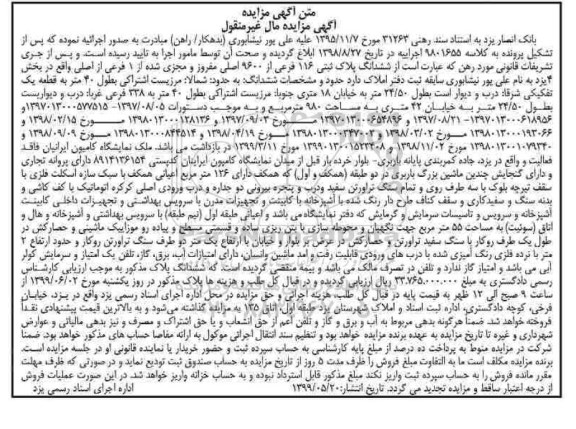 متن آگهی مزایده
آگهی مزایده مال غیرمنقول
بانک انصار یزد به استناد سند رهنی ۳۱۲۶۳ مورخ ۱۳۹۵/۱۱/۷ علیه علی پور نیشابوری (بدهکار/ راهن) مبادرت به صدور اجرائیه نموده که پس از
تشکیل پرونده به کلاسه ۹۸۰۱۶۵۵ اجراییه در تاریخ ۱۳۹۸/۸/۲۷ ابلاغ گردیده و صحت آن توسط مامور اجرا به تایید رسیده است. و پس از جری
تشریفات قانونی مورد رهن که عبارت است از ششدانگ پلاک ثبتی ۱۱۶ فرعی از ۹۶۰۰ اصلی مفروز و مجزی شده از ۱ فرعی از اصلی واقع در بخش
۴یزد به نام علی پور نیشابوری سابقه ثبت دفتر املاک دارد حدود و مشخصات ششدانگ: به حدود: شمالا: مرزیست اشتراکی بطول ۴۰ متر به قطعه یک
تفکیکی شرقا: درب و دیوار است بطول ۲۴/۵۰ متر به خیابان ۱۸ متری جنوبا: مرزیست اشتراکی بطول ۴۰ متر به ۳۳۸ فرعی غربا: درب و دیواریست
بطول ۲۴/۵۰ متر به خیابان ۴۲ متری به مساحت ۹۸۰ مترمربع و به موجب دستورات ۱۳۹۷/۰۸/۰۵- ۱۳۹۷۰۱۳۰۰۰۵۷۷۵۱۵و
در بازداشت می باشد. ملک نمایشگاه کامیون ایرانیان فاقد
فعالیت و واقع در یزد، جاده کمربندی پایانه باربری- بلوار خرده بار قبل از میدان نمایشگاه کامیون ایرانیان کدپستی ۸۹۱۴۱۳۶۱۵۴ دارای پروانه تجاری
و دارای گنجایش چندین ماشین بزرگ باربری در دو طبقه (همکف و اول) که همکف دارای ۱۲۶ متر مربع اعیانی همکف با سبک سازه اسکلت فلزی با
سقف تیرچه بلوک با سه طرف روی و تمام سنگ تراورتن سفید ودرب و پنجره بیرونی دو جداره و درب ورودی اصلی کرکره اتوماتیک با کف کاشی و
بدنه سنگ و سفیدکاری و سقف کناف طرح دار رنگ شده با آشپزخانه با کابینت و تجهیزات مدرن با سرویس بهداشتی و تجهیزات داخلی کابینت
آشپزخانه و سرویس و تاسیسات سرمایش و گرمایش که دفتر نمایشگاه می باشد و اعیانی طبقه اول (نیم طبقه) با سرویس بهداشتی و آشپزخانه و هال و
اتاق (سوئیت) به مساحت ۵۵ متر مربع جهت نگهبان و محوطه سازی با بتن ریزی پیاده و قسمتی سطح و پیاده رو موزاییک ماشینی و حصارکش در
طول یک طرف روکار با سنگ سفید تراورتن و حصارکش در عرض بر بلوار و خیابان با ارتفاع یک متر دو طرف سنگ تراورتن روکار و حدود ارتفاع ۲
متر با نرده فلزی رنگ آمیزی شده با درب های ورودی قابلیت رفت و آمد ماشین وانسان، دارای امتیازات آب، برق، گاز، تلفن یک امتیاز و سرمایش کولر
آبی می باشد و امتیاز گاز ندارد و تلفن در تصرف مالک می باشد و بیمه منقضی گردیده است که ششدانگ پلاک مذکور به موجب ارزیابی کارشناس
رسمی دادگستری به مبلغ ۳۳.۷۶۵.۰۰۰.۰۰۰ ریال ارزیابی گردیده و در قبال کل طلب و هزینه ها پلاک مذکور در روز یکشنبه مورخ ۱۳۹۹/۰۶/۰۲ از
ساعت ۹ صبح الی ۱۲ ظهر به قیمت پایه در قبال کل طلب، هزینه اجرائی و حق مزایده در محل اداره اجرای اسناد رسمی یزد واقع در یزد، خیابان
فرخی، کوچه دادگستری، اداره ثبت اسناد و املاک شهرستان یزد طبقه اول، اتاق ۱۷ به مزایده گذاشته می شود و به بالاترین قیمت پیشنهادی نقدا
فروخته خواهد شد. ضمناً هرگونه بدهی مربوط به آب و برق و گاز و تلفن اعم از حق انشعاب و یا حق اشتراک و مصرف و نیز بدهی مالیاتی و عوارض
شهرداری و غیره تا تاریخ مزایده به عهده برنده مزایده خواهد بود و تنظیم سند انتقال اجرائی موکول به ارائه مفاصا حساب های مذکور خواهد بود. ضمنا
شرکت در مزایده منوط به پرداخت ده درصد از مبلغ پایه کارشناسی به حساب سپرده ثبت و حضور خریدار یا نماینده قانونی او در جلسه مزایده است.
برنده مزایده مکلف است ما به التفاوت مبلغ فروش را ظرف مدت ۵ روز از تاریخ مزایده به حساب صندوق ثبت تودیع نماید و در صورتی که ظرف مهلت
مقرر مانده فروش را به حساب سپرده ثبت واریز نکند مبلغ مذکور قابل استرداد نبوده و به حساب خزانه واریز خواهد شد. در این صورت عملیات فروش
از درجه اعتبار ساقط و مزایده تجدید می گردد. تاریخ انتشار: ۱۳۹۹/۰۵/۲۰ اداره اجرای اسناد رسمی یزد